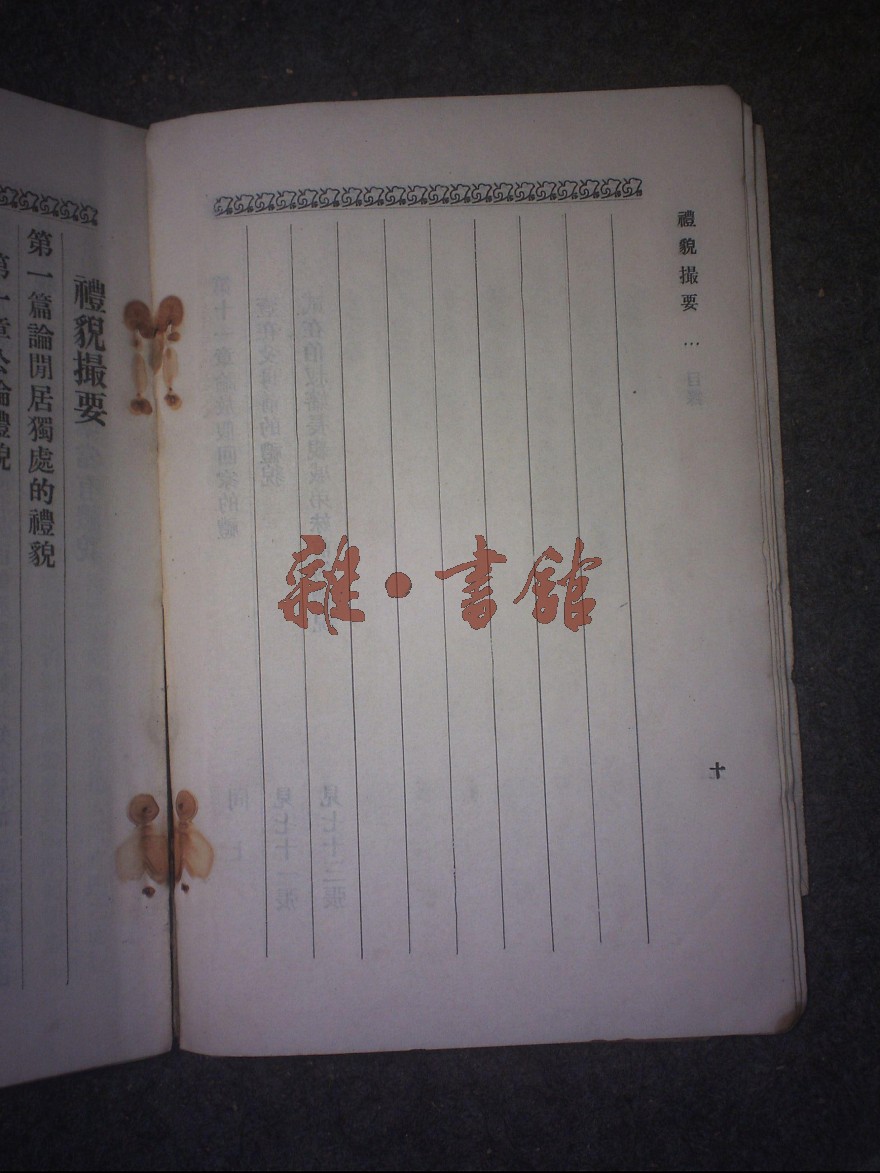 禮貌撮要 … 目錄
十
雜·書館
禮貌撮要
第一篇論閒居獨處的禮貌
第一章公論禮貌